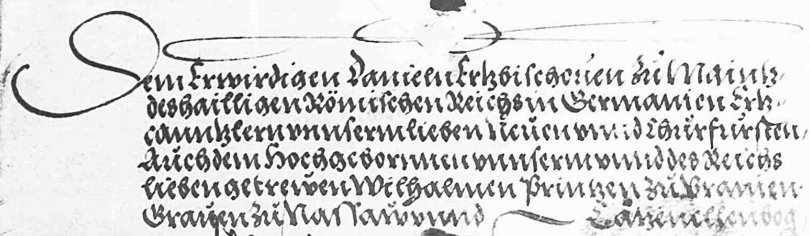 Dem Erwirdigen Danieln Ertzbischouen zu Maintz,
des hailligen Römischen Reichs in Germanien Ertz-
canntzlern vnnserm lieben Neuen vnnd Churfürsten,
Auch dem Hochgebornnen vnnserm vnnd des Reichs
lieben getrewen Wilhalmen Printzen zu Vranien
Grauen zu Nassaw vnnd Catzenellenbog